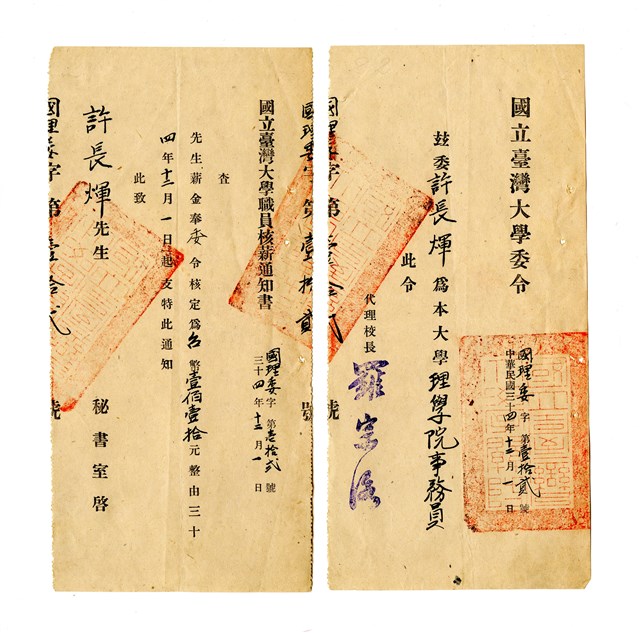 國立臺灣大學委令
國理委字第壹拾貳號
中華民國三十四年十二月一日
玆委許長煇為本大學理學院事務員
此令
代理校長
羅宗洛
國理委字第壹拾貳號
國立臺灣大學職員核薪通知書
國理委字第壹拾貳號
三十四年十二月一日
查
先生薪金奉委令核定為台幣壹佰壹拾元整由三十
四年十二月一日起支特此通知
此致
許長煇先生
秘書室啓
國理委字第壹拾貳號